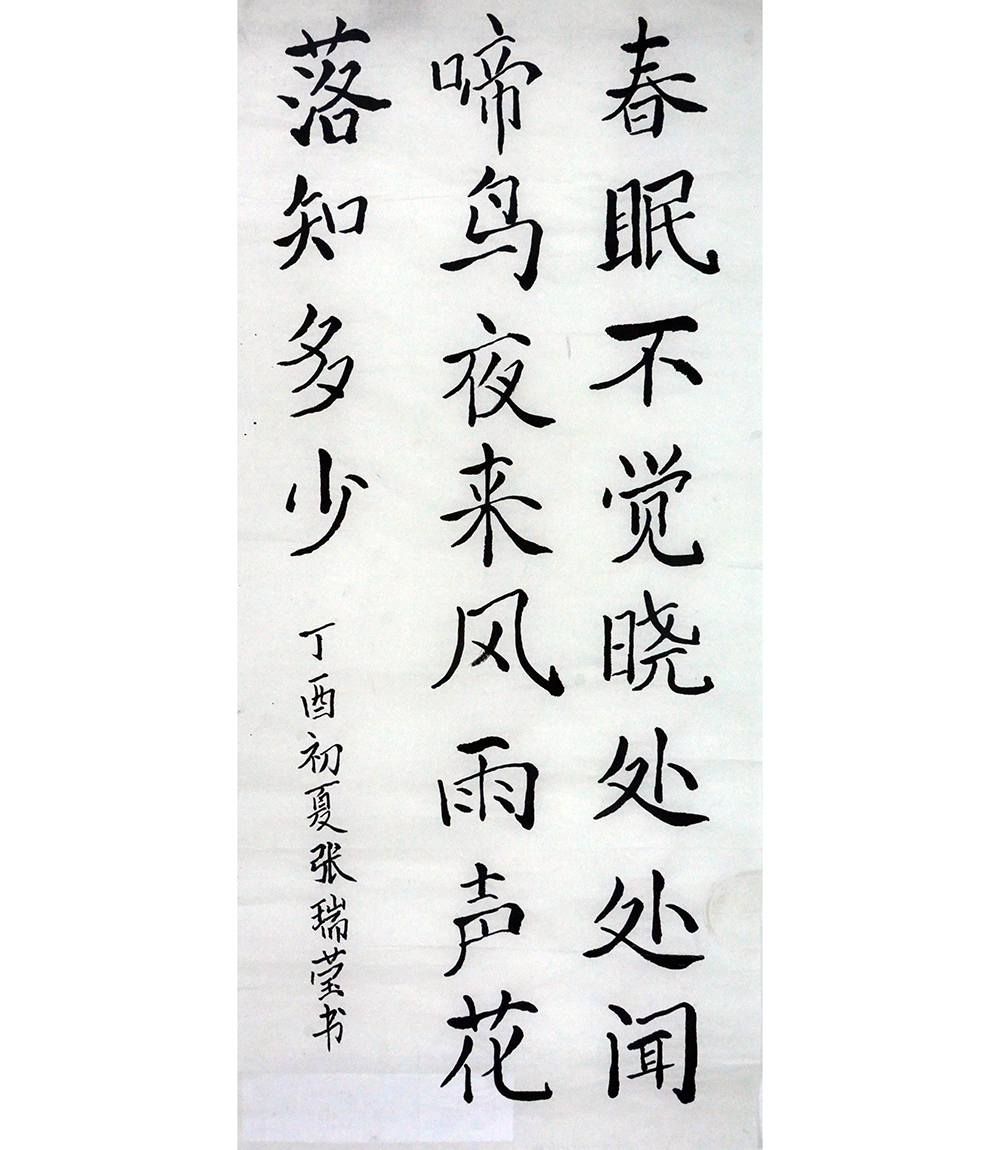 春眠不觉晓处处闻
啼鸟夜来风雨声花
落知多少
丁酉初夏张瑞莹书